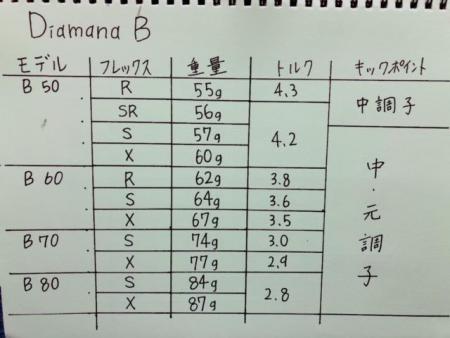 Diamana B
モデル フレックス 重量 トルク キックポイント
B 50 R 55g 4.3 中調子
SR 56g 4.2
S 57g
X 60g
B 60 R 62g 3.8 中・元調子
S 64g 3.6
X 67g 3.5
B 70 S 74g 3.0
X 77g 2.9
B 80 S 84g 2.8
X 87g